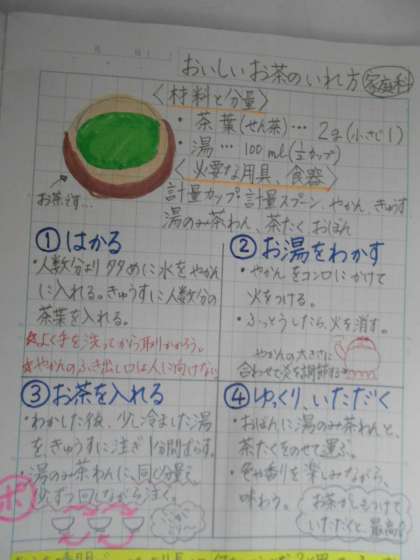 月 日( )
おいしいお茶のいれ方 家庭科
〈材料と分量〉
・茶葉(せん茶)… 2g(小さじ1)
・湯… 100ml(½カップ)
〈必要な用具、食器〉
計量カップ・計量スプーン、やかん、きゅうす
湯のみ茶わん、茶たく、おぼん
お茶です…
①はかる
・人数分より多めに水をやかん
に入れる。きゅうすに人数分の
茶葉を入れる。
★よく手を洗ってから取りかかろう。
★やかんのふき出し口は人に向けない
②お湯をわかす
・やかんをコンロにかけて
火をつける。
・ふっとうしたら、火を消す。
やかんの大きさに
合わせて炎を調節する
③お茶を入れる
・わかした後、少し冷ました湯
を、きゅうすに注ぎ1分間むらす。
・湯のみ茶わんに、同じ分量を
少しずつ回しながら注ぐ。
ポ
④ゆっくり、いただく
・おぼんに湯のみ茶わんと、
茶たくをのせて運ぶ。
・色や香りを楽しみながら、
味わう。